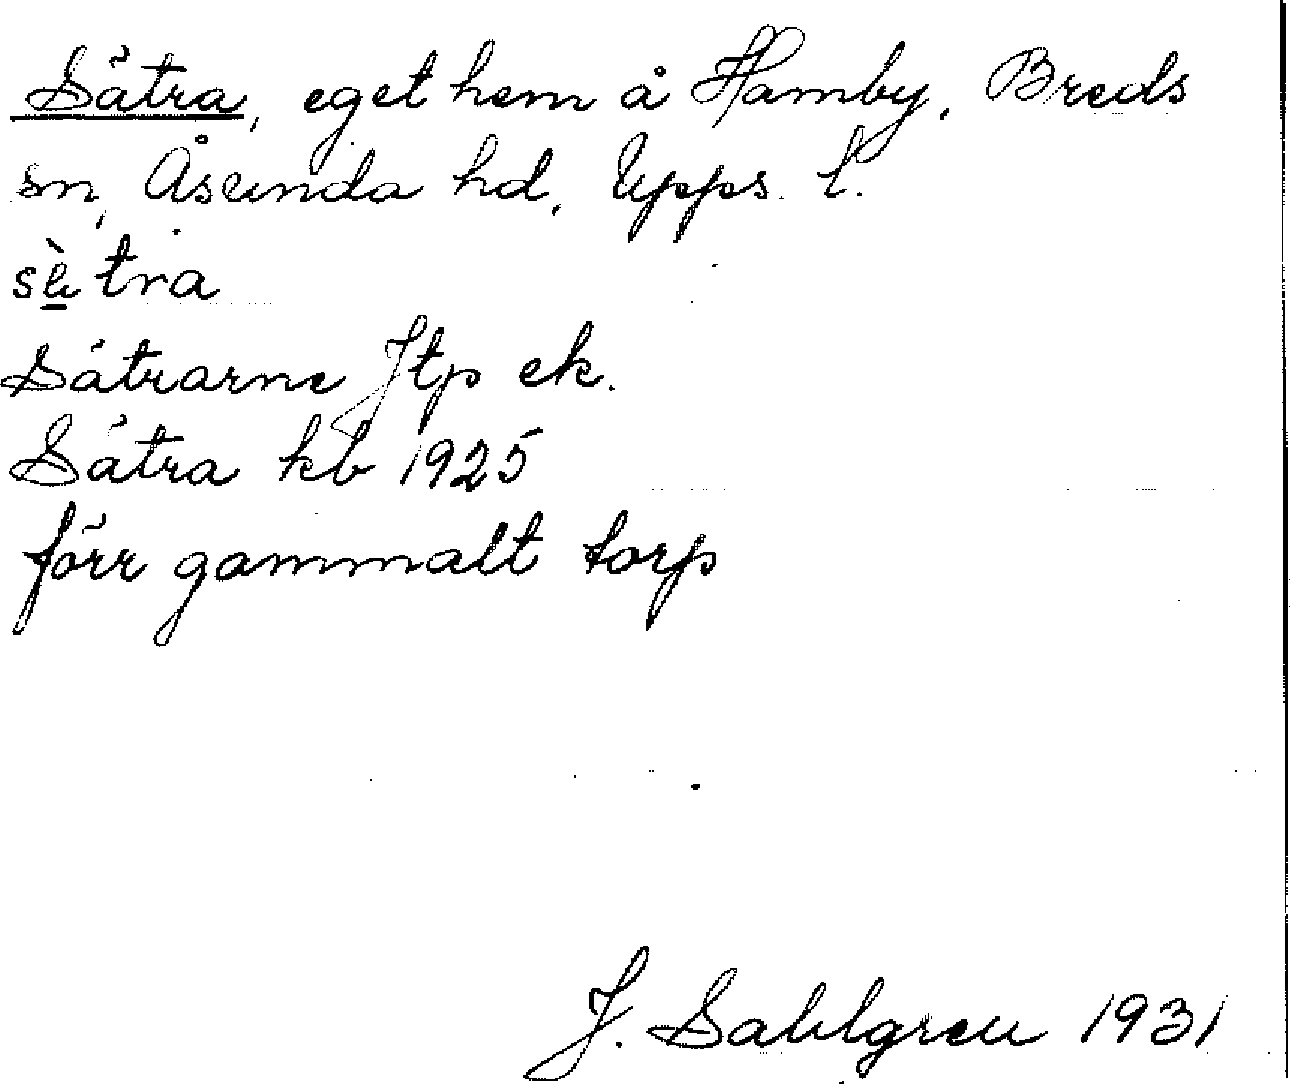 Sätra, eget hem å Hamby, Breds
sn, Åsunda hd, Upps. l.
sè̠tra
Sätrarne Jtp ek.
Sätra kb 1925
förr gammalt torp
J. Sahlgren 1931